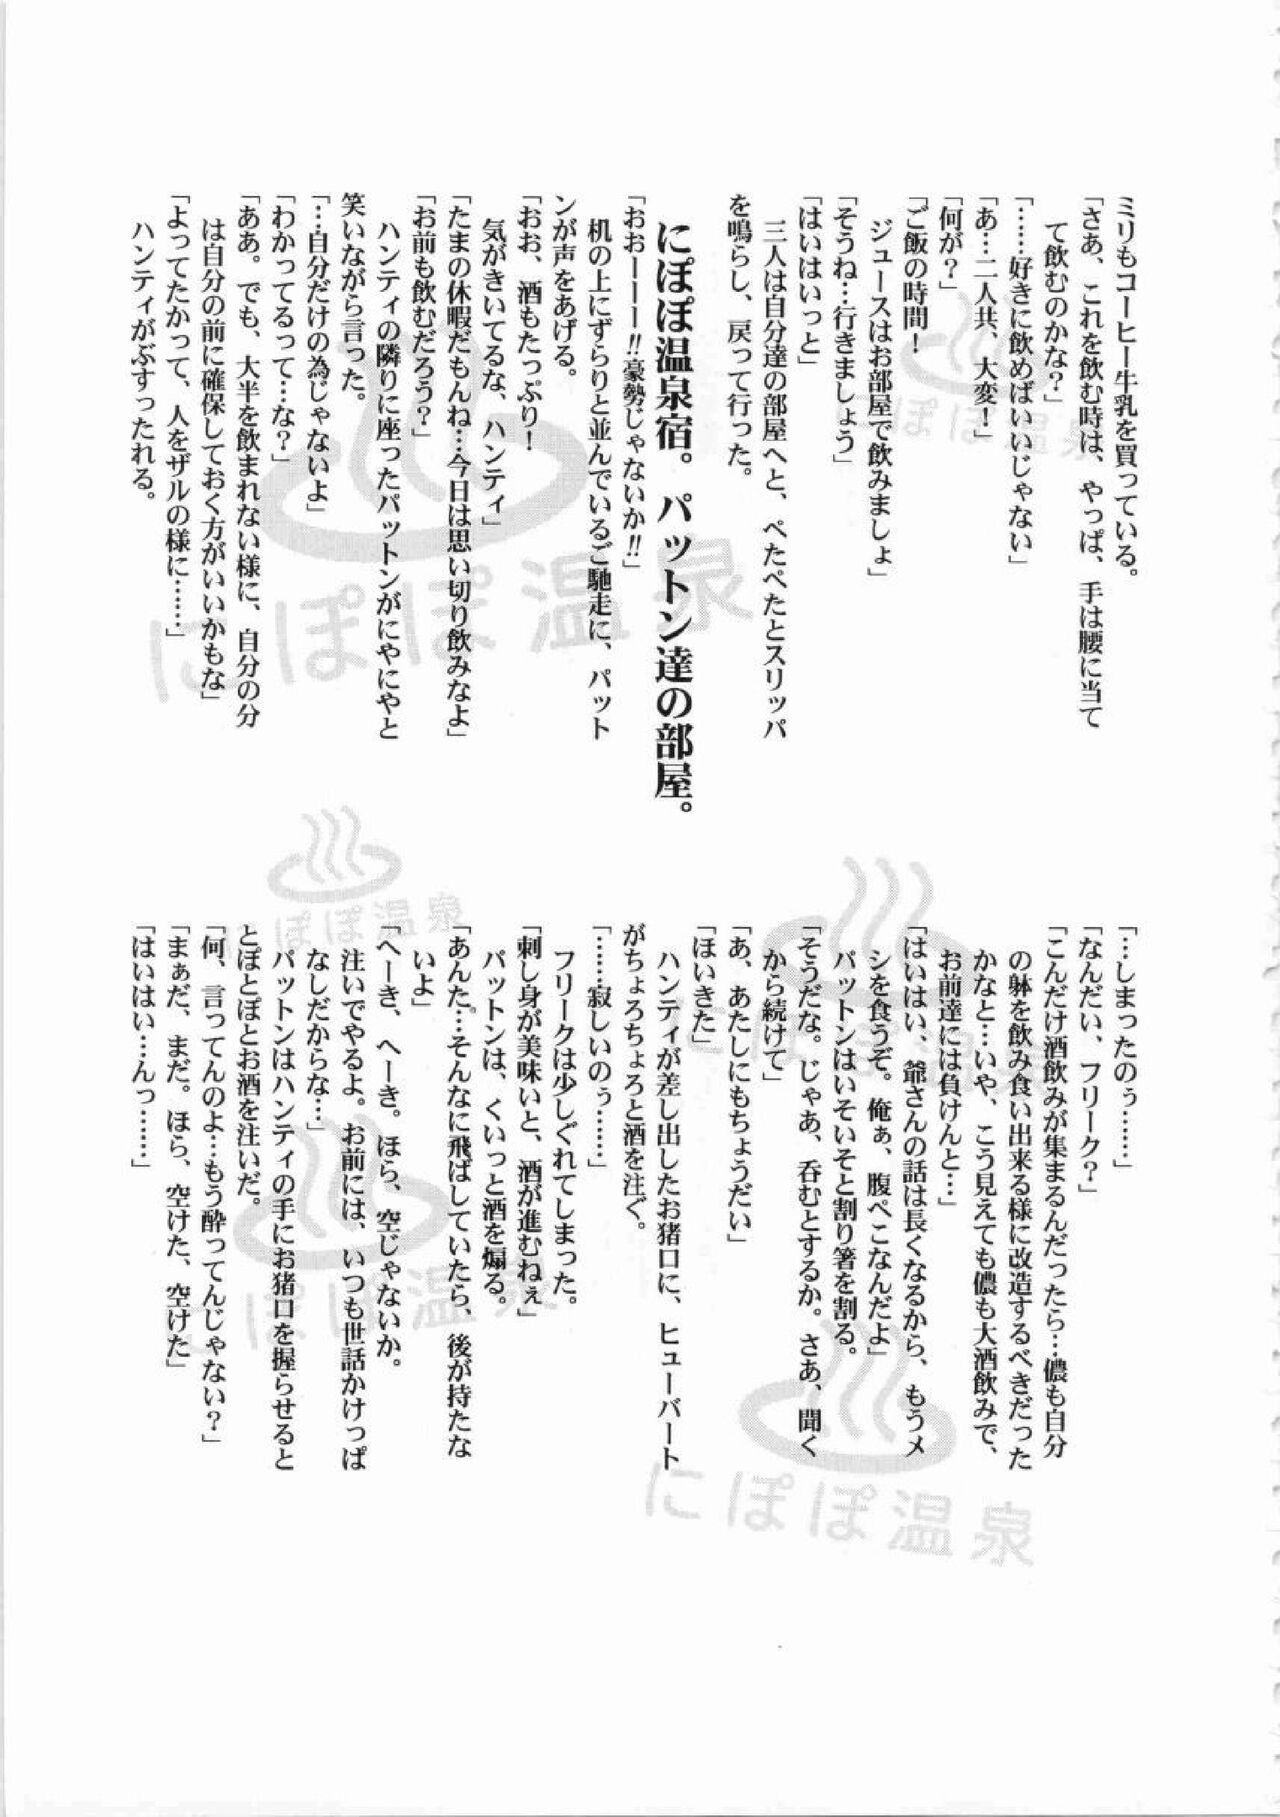 ミリもコーヒー牛乳を買っている。
「さあ、これを飲む時は、やっぱ、手は腰に当て
て飲むのかな？」
「……好きに飲めばいいじゃない」
「あ…二人共、大変！」
「何が？」
「ご飯の時間！
ジュースはお部屋で飲みましょ」
「そうね…行きましょう」
「はいはいっと」
三人は自分達の部屋へと、ぺたぺたとスリッパ
を鳴らし、戻って行った。
にぽぽ温泉宿。パットン達の部屋。
「おおーーー!!豪勢じゃないか!!」
机の上にずらりと並んでいるご馳走に、パット
ンが声をあげる。
「おお、酒もたっぷり！
気がきいてるな、ハンティ」
「たまの休暇だもんね…今日は思い切り飲みなよ」
「お前も飲むだろう？」
ハンティの隣りに座ったパットンがにやにやと
笑いながら言った。
「…自分だけの為じゃないよ」
「わかってるって…な？」
「ああ。でも、大半を飲まれない様に、自分の分
は自分の前に確保しておく方がいいかもな」
「よってたかって、人をザルの様に……」
ハンティがぶすったれる。
「…しまったのぅ……」
「なんだい、フリーク？」
「こんだけ酒飲みが集まるんだったら…儂も自分
の躰を飲み食い出来る様に改造するべきだった
かなと…いや、こう見えても儂も大酒飲みで、
お前達には負けんと…」
「はいはい、爺さんの話は長くなるから、もうメ
シを食うぞ。俺ぁ、腹ぺこなんだよ」
パットンはいそいそと割り箸を割る。
「そうだな。じゃあ、呑むとするか。さあ、聞く
から続けて」
「あ、あたしにもちょうだい」
「ほいきた」
ハンティが差し出したお猪口に、ヒューバート
がちょろちょろと酒を注ぐ。
「……寂しいのぅ……」
フリークは少しぐれてしまった。
「刺し身が美味いと、酒が進むねぇ」
パットンは、くいっと酒を煽る。
「あんた…そんなに飛ばしていたら、後が持たな
いよ」
「へーき、へーき。ほら、空じゃないか。
注いでやるよ。お前には、いつも世話かけっぱ
なしだからな…」
パットンはハンティの手にお猪口を握らせると
とぽとぽとお酒を注いだ。
「何、言ってんのよ…もう酔ってんじゃない？」
「まぁだ、まだ。ほら、空けた、空けた」
「はいはい…んっ……」
にぽぽ温泉
にぽぽ温泉
にぽぽ温泉
にぽぽ温泉
にぽぽ温泉
にぽぽ温泉